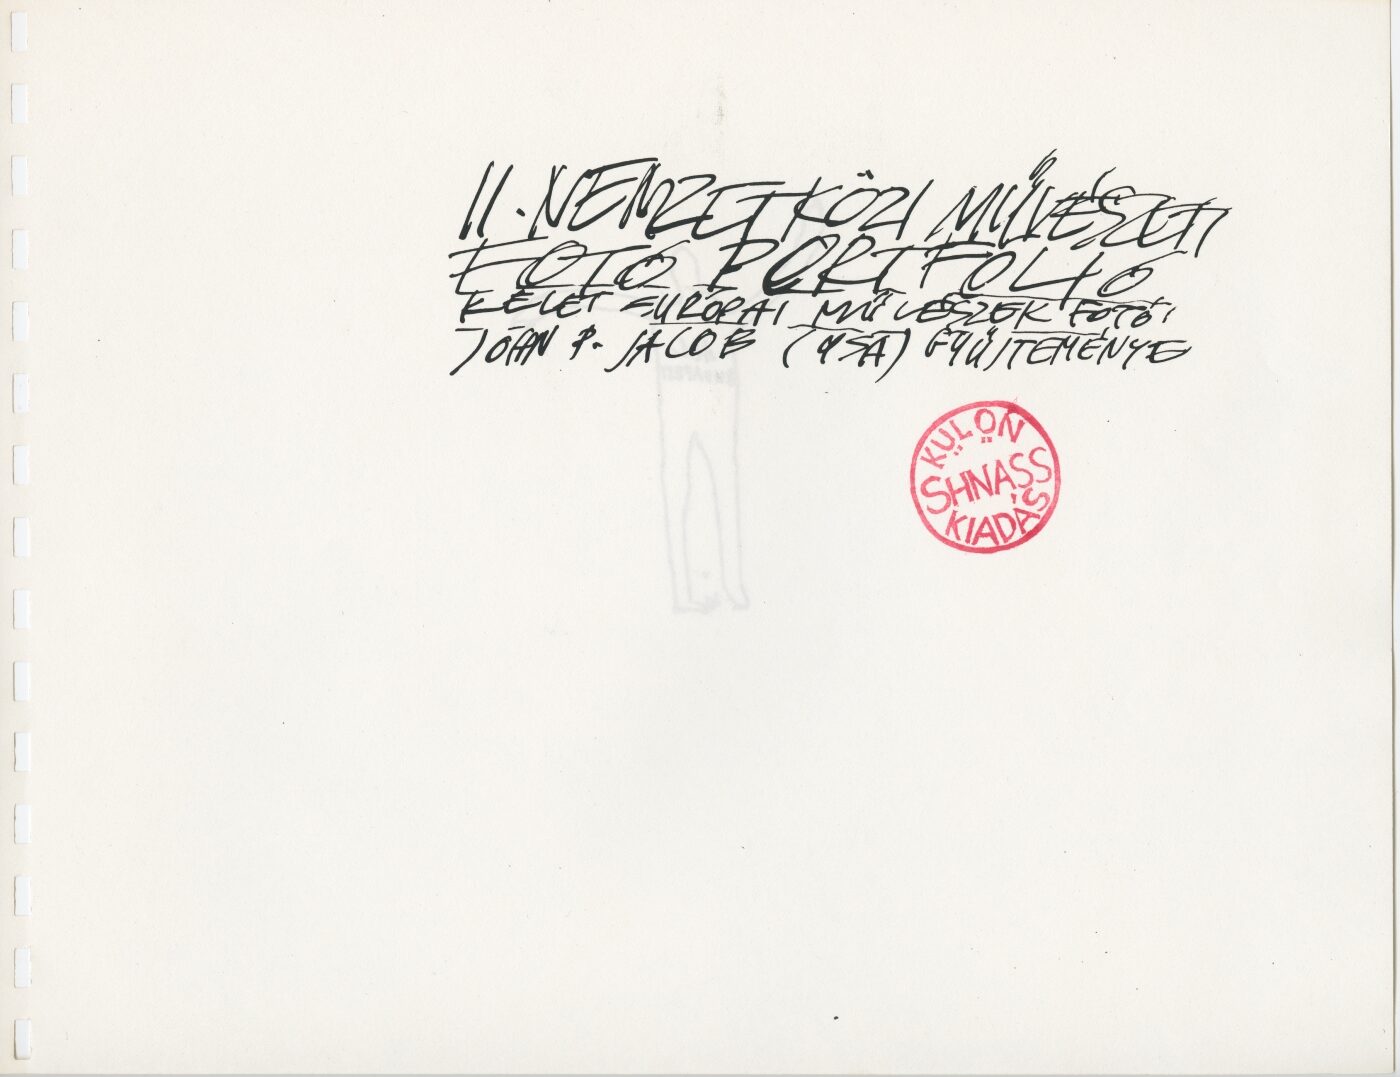 II. NEMZETKÖZI MŰVÉSZETI
FOTÓ PORTFOLIÓ
KELET EURÓPAI MŰVÉSZEK FOTÓI
JOHN P. JACOB (USA) GYŰJTEMÉNYE
KÜLÖN
SHNASS
KIADÁS